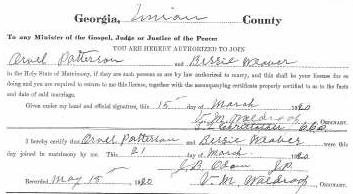 Georgia, Union County
To any Minister of the Gospel, Judge or Justice of the Peace:
YOU ARE HEREBY AUTHORIZED TO JOIN
Orvel Patterson and Bessie Weaver
in the Holy State of Matrimony, if they are such persons as are by law authorized to marry, and this shall be your license for so
doing and you are required to return to me this license, together with the accompanying certificate properly certified to as to the facts
and date of said marriage.
Given under my hand and official signature, this 15 day of March 1920
V. M. Waldroop ORDINARY.
I hereby certify that Orvel Patterson and Bessie Weaver were this
day joined in matrimony by me. This 21 day of March 1920
J. B. Odom J.P.
Recorded May 15 1920 V. M. Waldroop ORDINARY.